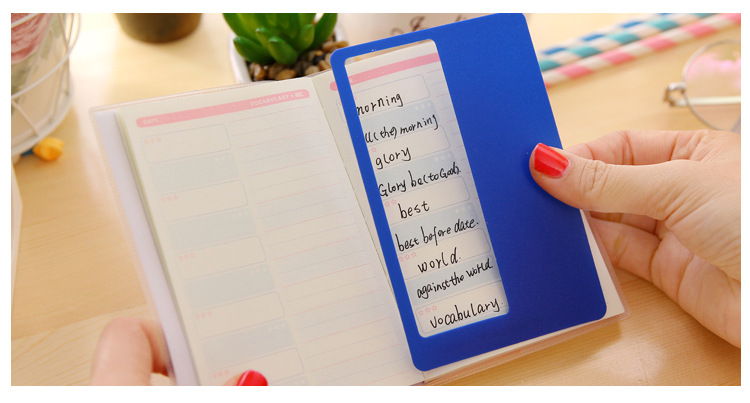 DATE
VOCABULARY
morning
all (the) morning
glory
Glory be (to God).
best
best before date.
world.
against the world
vocabulary.